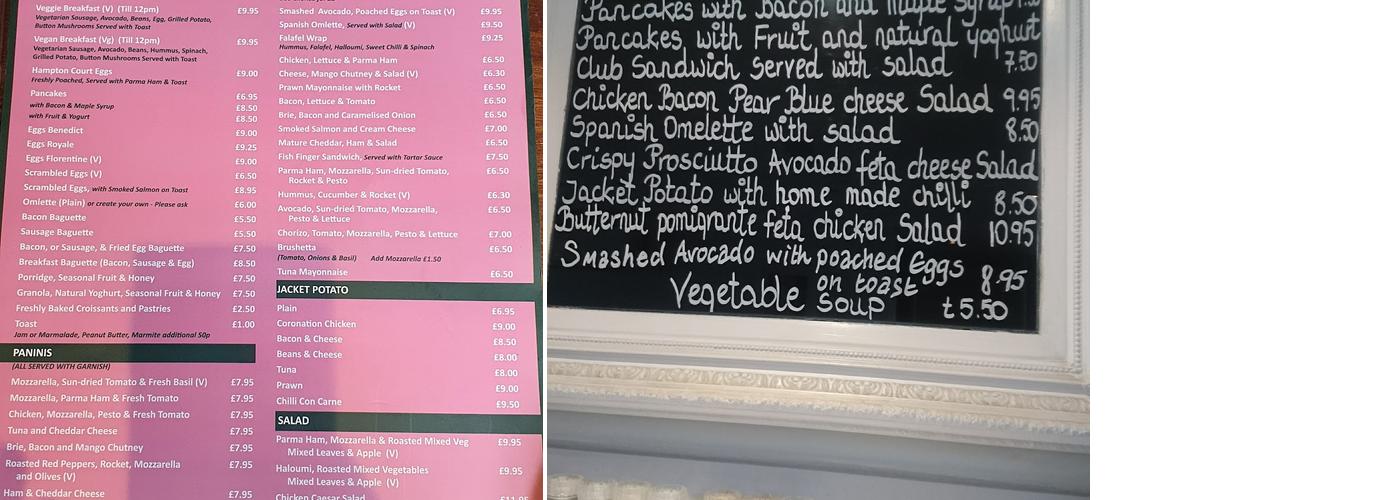 Veggie Breakfast (V) (Till 12pm) £9.95
Vegetarian Sausage, Avocado, Beans, Egg, Grilled Potato,
Button Mushrooms Served with Toast
Vegan Breakfast (Vg) (Till 12pm) £9.95
Vegetarian Sausage, Avocado, Beans, Hummus, Spinach,
Grilled Potato, Button Mushrooms Served with Toast
Hampton Court Eggs £9.00
Freshly Poached, Served with Parma Ham & Toast
Pancakes £6.95
with Bacon & Maple Syrup £8.50
with Fruit & Yogurt £8.50
Eggs Benedict £9.00
Eggs Royale £9.25
Eggs Florentine (V) £9.00
Scrambled Eggs (V) £6.50
Scrambled Eggs, with Smoked Salmon on Toast £8.95
Omlette (Plain) or create your own - Please ask £6.00
Bacon Baguette £5.50
Sausage Baguette £5.50
Bacon, or Sausage, & Fried Egg Baguette £7.50
Breakfast Baguette (Bacon, Sausage & Egg) £8.50
Porridge, Seasonal Fruit & Honey £7.50
Granola, Natural Yoghurt, Seasonal Fruit & Honey £7.50
Freshly Baked Croissants and Pastries £2.50
Toast £1.00
Jam or Marmalade, Peanut Butter, Marmite additional 50p
PANINIS
(ALL SERVED WITH GARNISH)
Mozzarella, Sun-dried Tomato & Fresh Basil (V) £7.95
Mozzarella, Parma Ham & Fresh Tomato £7.95
Chicken, Mozzarella, Pesto & Fresh Tomato £7.95
Tuna and Cheddar Cheese £7.95
Brie, Bacon and Mango Chutney £7.95
Roasted Red Peppers, Rocket, Mozzarella £7.95
and Olives (V)
Ham & Cheddar Cheese £7.95
Smashed Avocado, Poached Eggs on Toast (V) £9.95
Spanish Omlette, Served with Salad (V) £9.50
Falafel Wrap £9.25
Hummus, Falafel, Halloumi, Sweet Chilli & Spinach
Chicken, Lettuce & Parma Ham £6.50
Cheese, Mango Chutney & Salad (V) £6.30
Prawn Mayonnaise with Rocket £6.50
Bacon, Lettuce & Tomato £6.50
Brie, Bacon and Caramelised Onion £6.50
Smoked Salmon and Cream Cheese £7.00
Mature Cheddar, Ham & Salad £6.50
Fish Finger Sandwich, Served with Tartar Sauce £7.50
Parma Ham, Mozzarella, Sun-dried Tomato, £6.50
Rocket & Pesto
Hummus, Cucumber & Rocket (V) £6.30
Avocado, Sun-dried Tomato, Mozzarella, £6.50
Pesto & Lettuce
Chorizo, Tomato, Mozzarella, Pesto & Lettuce £7.00
Brushetta £6.50
(Tomato, Onions & Basil) Add Mozzarella £1.50
Tuna Mayonnaise £6.50
JACKET POTATO
Plain £6.95
Coronation Chicken £9.00
Bacon & Cheese £8.50
Beans & Cheese £8.00
Tuna £8.00
Prawn £9.00
Chilli Con Carne £9.50
SALAD
Parma Ham, Mozzarella & Roasted Mixed Veg £9.95
Mixed Leaves & Apple (V)
Haloumi, Roasted Mixed Vegetables £9.95
Mixed Leaves & Apple (V)
Chicken Caesar Salad £11.95
Pancakes with Bacon and maple syrup
Pancakes with Fruit and natural yoghurt
Club Sandwich Served with salad 7.50
Chicken Bacon Pear Blue cheese Salad 9.95
Spanish Omelette with salad 8.50
Crispy Prosciutto Avocado feta cheese Salad
Jacket Potato with home made chilli 8.50
Butternut pomigrante feta chicken Salad 10.95
Smashed Avocado with poached Eggs 8.95
on toast
Vegetable Soup £5.50